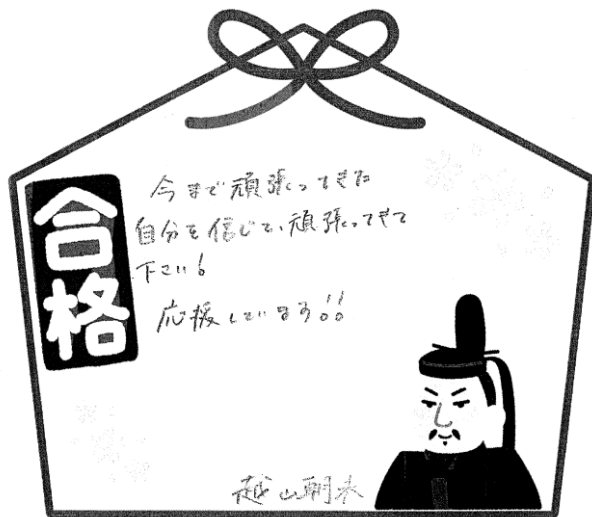 合格
今まで頑張ってきた
自分を信じて、頑張ってきて
下さい!
応援しています!!
越山朝来